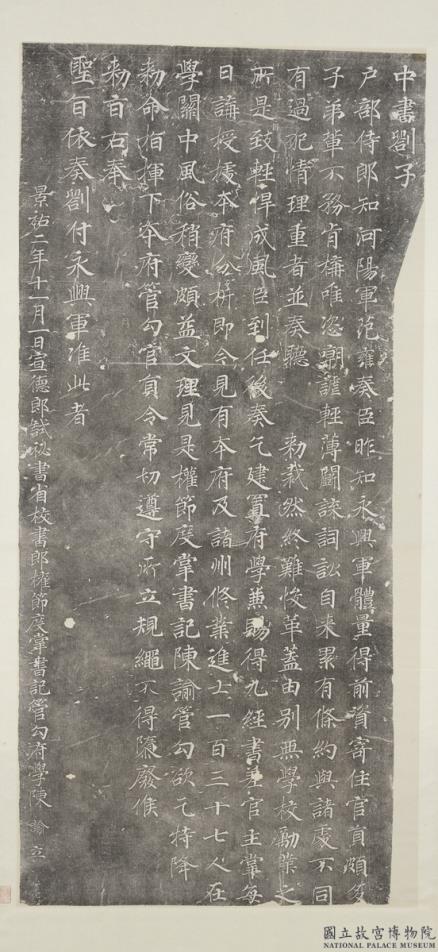 中書劄子
戶部侍郎知河陽軍范雍奏臣昨知永興軍體量得前資寄住官員頗多
子弟輩不務肯構唯恣嘲謔輕薄鬭諫詞訟自来累有條約與諸處不同
有過犯情理重者並奏聽　勑裁然終難悛革蓋由別無學校勵業之
所是致輕悍成風臣到任後奏乞建置府學兼賜得九經書差官主掌每
日講授據本府分析即今見有本府及諸州修業進士一百三十七人在
學關中風俗稍變頗益文理見是權節度掌書記陳諭管勾欲乞特降
勑命指揮下本府管勾官員令常切遵守所立規繩不得隳廢候
勑旨右奉
聖旨依奏劄付永興軍准此者
景祐二年十一月一日宣德郎試祕書省校書郎權節度掌書記管勾府學陳　諭立
國立故宮博物院
NATIONAL PALACE MUSEUM